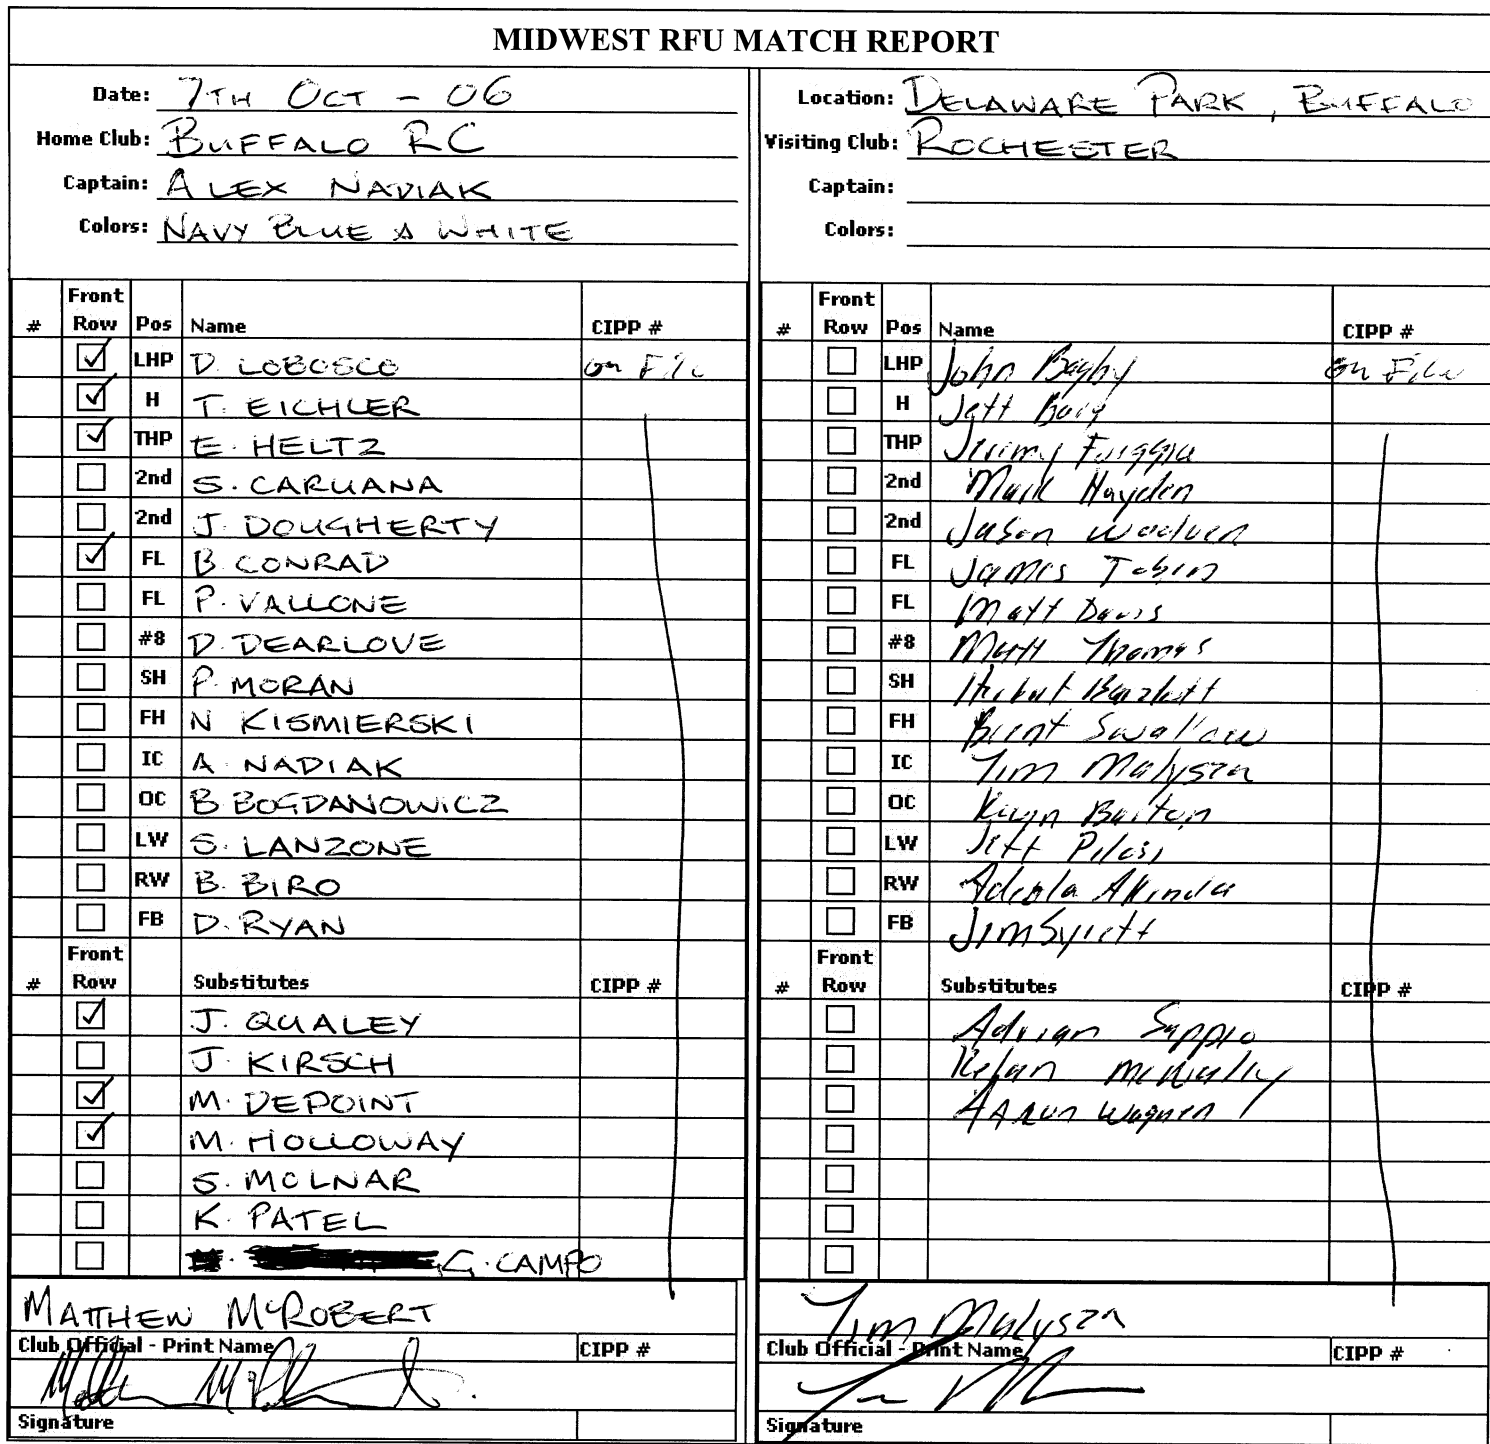 MIDWEST RFU MATCH REPORT
Date: 7TH OCT - 06
Home Club: BUFFALO RC
Captain: ALEX NADIAK
Colors: NAVY BLUE & WHITE
# Front Row Pos Name CIPP #
LHP D. LOBOSCO on File
H T. EICHLER
THP E. HELTZ
2nd S. CARUANA
2nd J. DOUGHERTY
FL B. CONRAD
FL P. VALLONE
#8 D. DEARLOVE
SH P. MORAN
FH N KISMIERSKI
IC A. NADIAK
OC B BOGDANOWICZ
LW S. LANZONE
RW B. BIRO
FB D. RYAN
# Front Row Substitutes CIPP #
J. QUALEY
J. KIRSCH
M. DEPOINT
M. HOLLOWAY
S. MOLNAR
K. PATEL
G. CAMPO
MATTHEW McROBERT
Club Official - Print Name CIPP #
Signature
Location: DELAWARE PARK, BUFFALO
Visiting Club: ROCHESTER
Captain:
Colors:
# Front Row Pos Name CIPP #
LHP John Bagby on File
H Jeff
THP Jeremy
2nd Mark Hayden
2nd Jason
FL James Tobin
FL Matt Davis
#8 Matt Thomas
SH Herbert Bartlett
FH Brent Swallow
IC Tim Malysza
OC Burton
LW Jeff Pilosi
RW Adeola
FB Jim Syrett
# Front Row Substitutes CIPP #
Adrian
McNally
AARON Wagner
Tim Malysza
Club Official - Print Name CIPP #
Signature